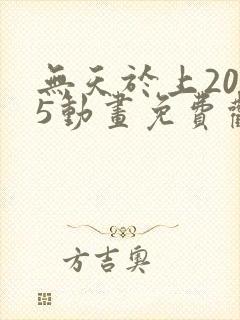 無天於上20
5動畫免費
方吉奥